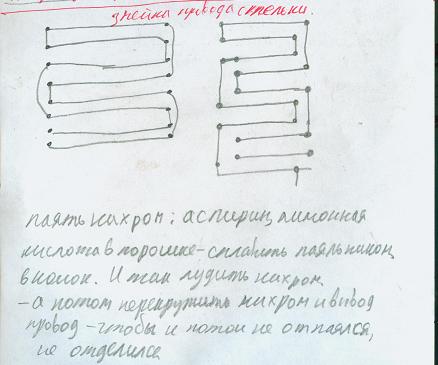 змейка провода стельки.
паять нихром: аспирин, лимонная
кислота в порошке - сплавить паяльником,
в комок. И так лудить нихром
- а потом перекрутить нихром и вывод
провод - чтобы и потом не отпаялся,
не отделился